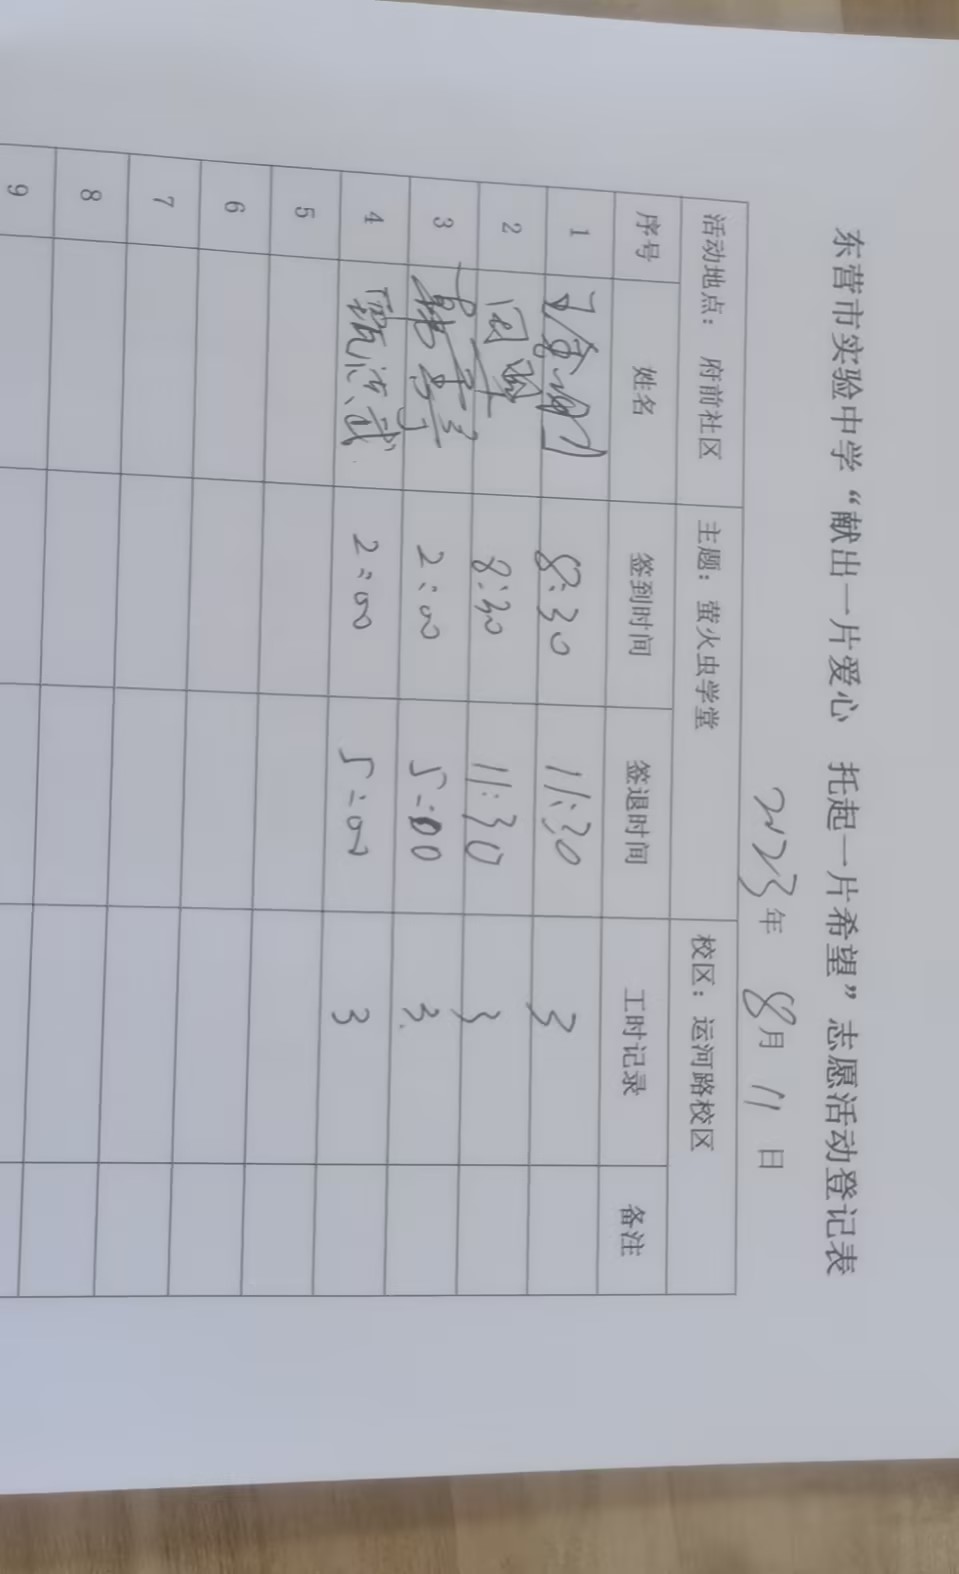 东营市实验中学“献出一片爱心 托起一片希望”志愿活动登记表
2023年 8月 11日
活动地点： 府前社区 主题：萤火虫学堂 校区：运河路校区
序号 姓名 签到时间 签退时间 工时记录 备注
1 8:30 11:30 3
2 8:30 11:30 3
3 2:00 5:00 3
4 2:00 5:00 3
5
6
7
8
9